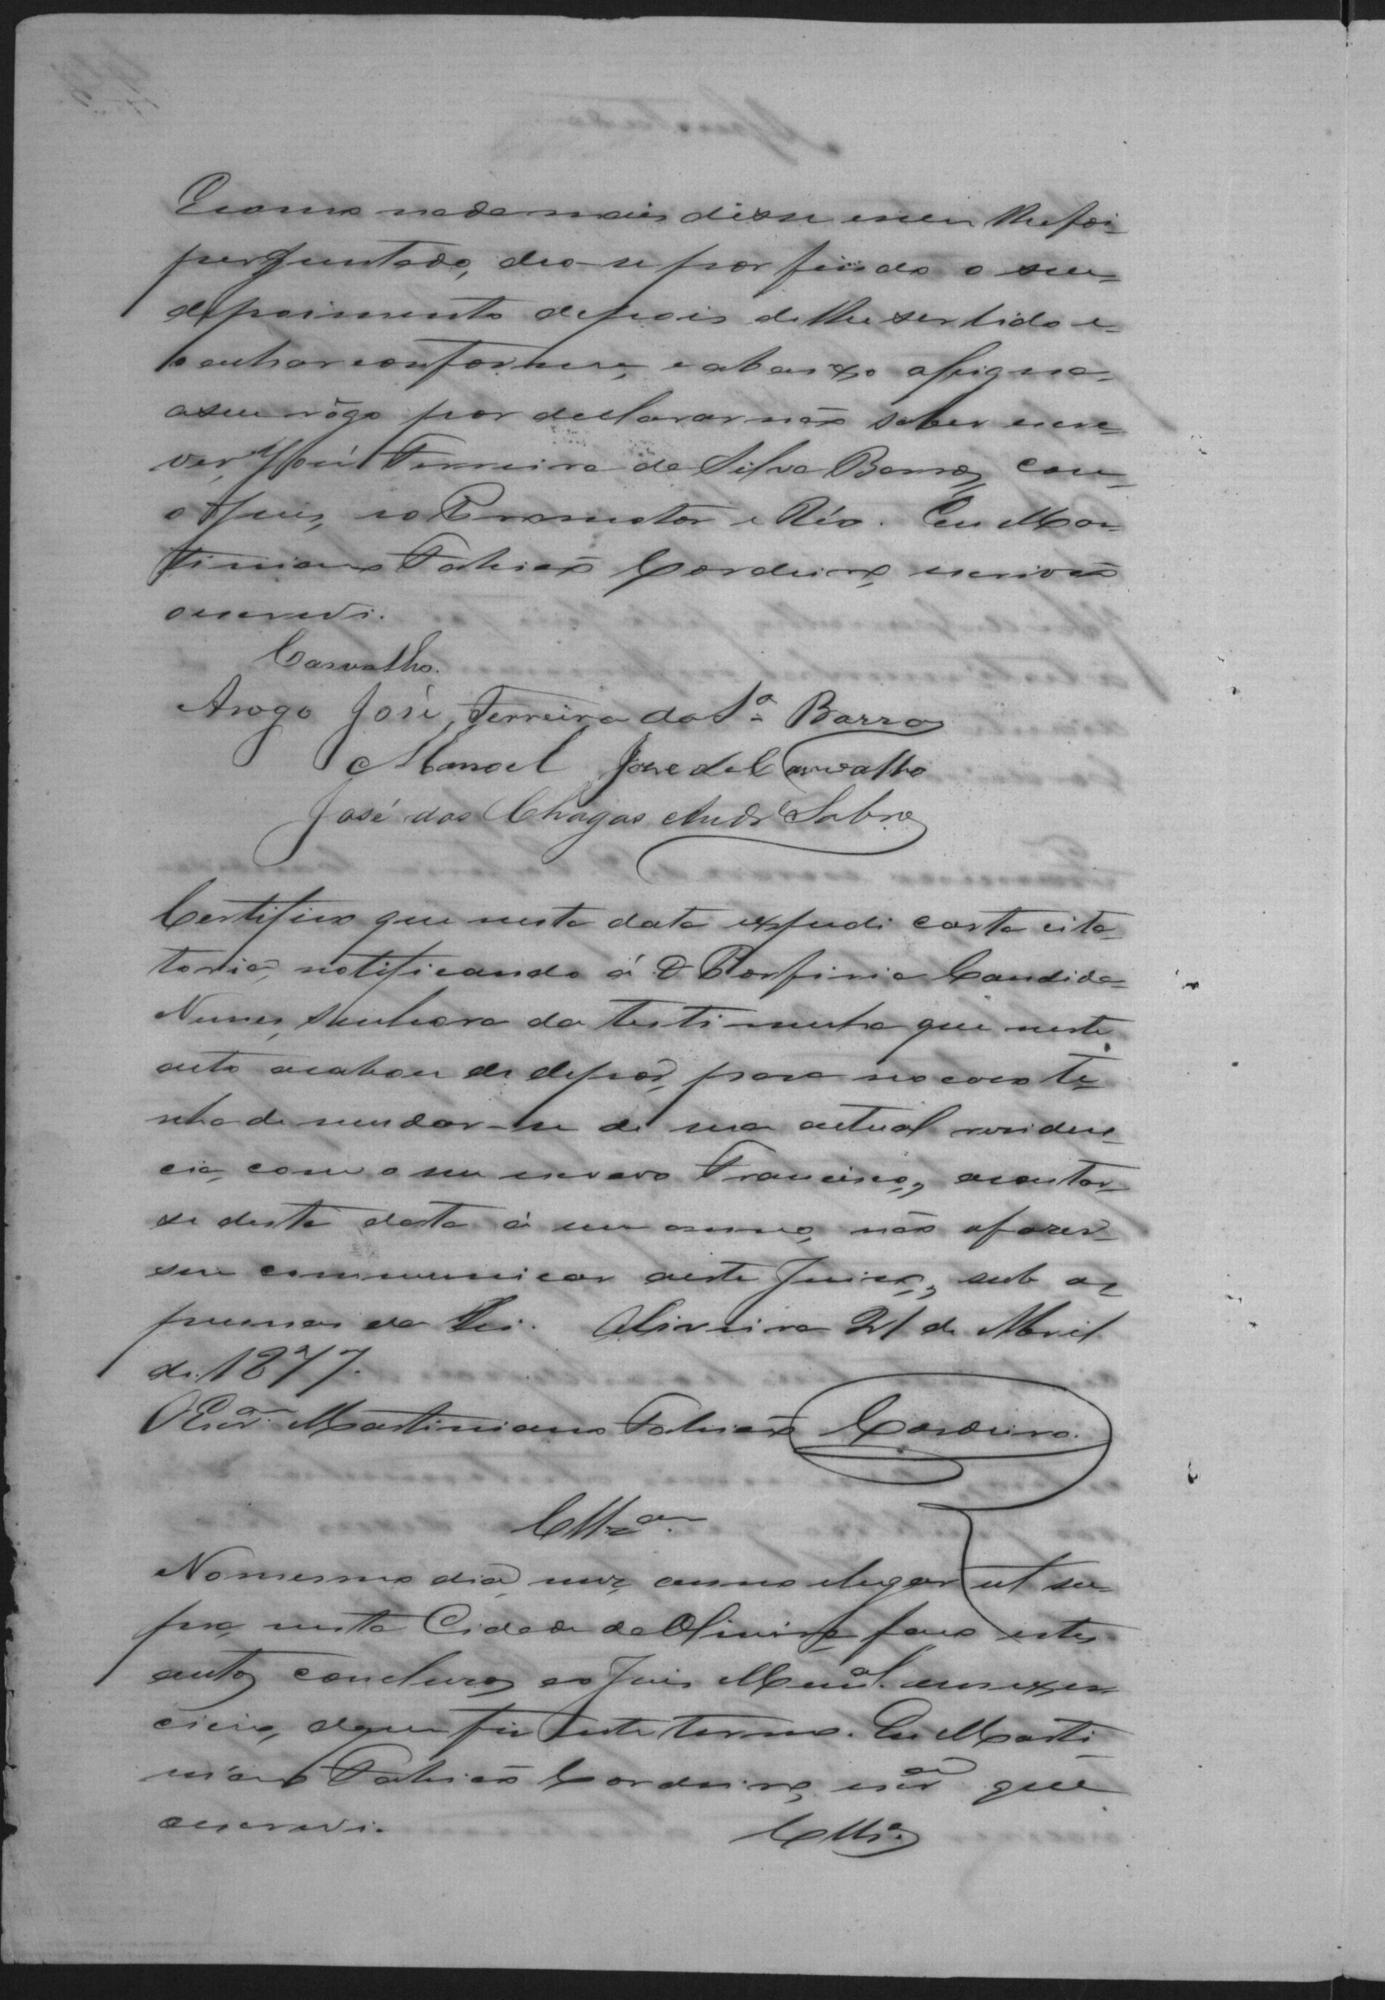 Ecomo nada mais disse nem lhe foi
perguntado, deo-se por findo o seu
depoimento depois de lhe ser lido e
o achar conforme, e abaixo assigna
a seu rôgo por declarar não saber escre-
ver, José Ferreira da Silva Barros, com
o Juis, eo Promotor e Réo. Eu Mar-
tiniano Fabião Cordeiro, escrivão
o escrevi.
Carvalho.
Arogo José Ferreira da Sª Barros
Manoel José de Carvalho
José das Chagas Andr.e Sobrº
Certifico que nesta data expedi carta cita-
toria, notificando á D Porfiria Candida
Nunes, senhora da testimunha que neste
acto acabou de depôr, para no caso te-
nha de mudar-se de sua actual residen-
cia, com o seu escravo Francisco, acontar-
se desta data á um anno, não o fazer
sem communicar aeste Juizo, sub as
pennas da Lei. Oliveira 21 de Abril
de 1877.
O Escr.am Martiniano Fabião Cordeiro.
Cllz.am
No mesmo dia, mez, anno elugar ut su-
pra, nesta Cidade da Oliveira, faço estes
autos concluzos ao Juis Mun.al em exer-
cicio, deque fiz este termo. Eu Marti-
niano Fabião Cordeiro, escr.am que
o escrevi.
Cllzos